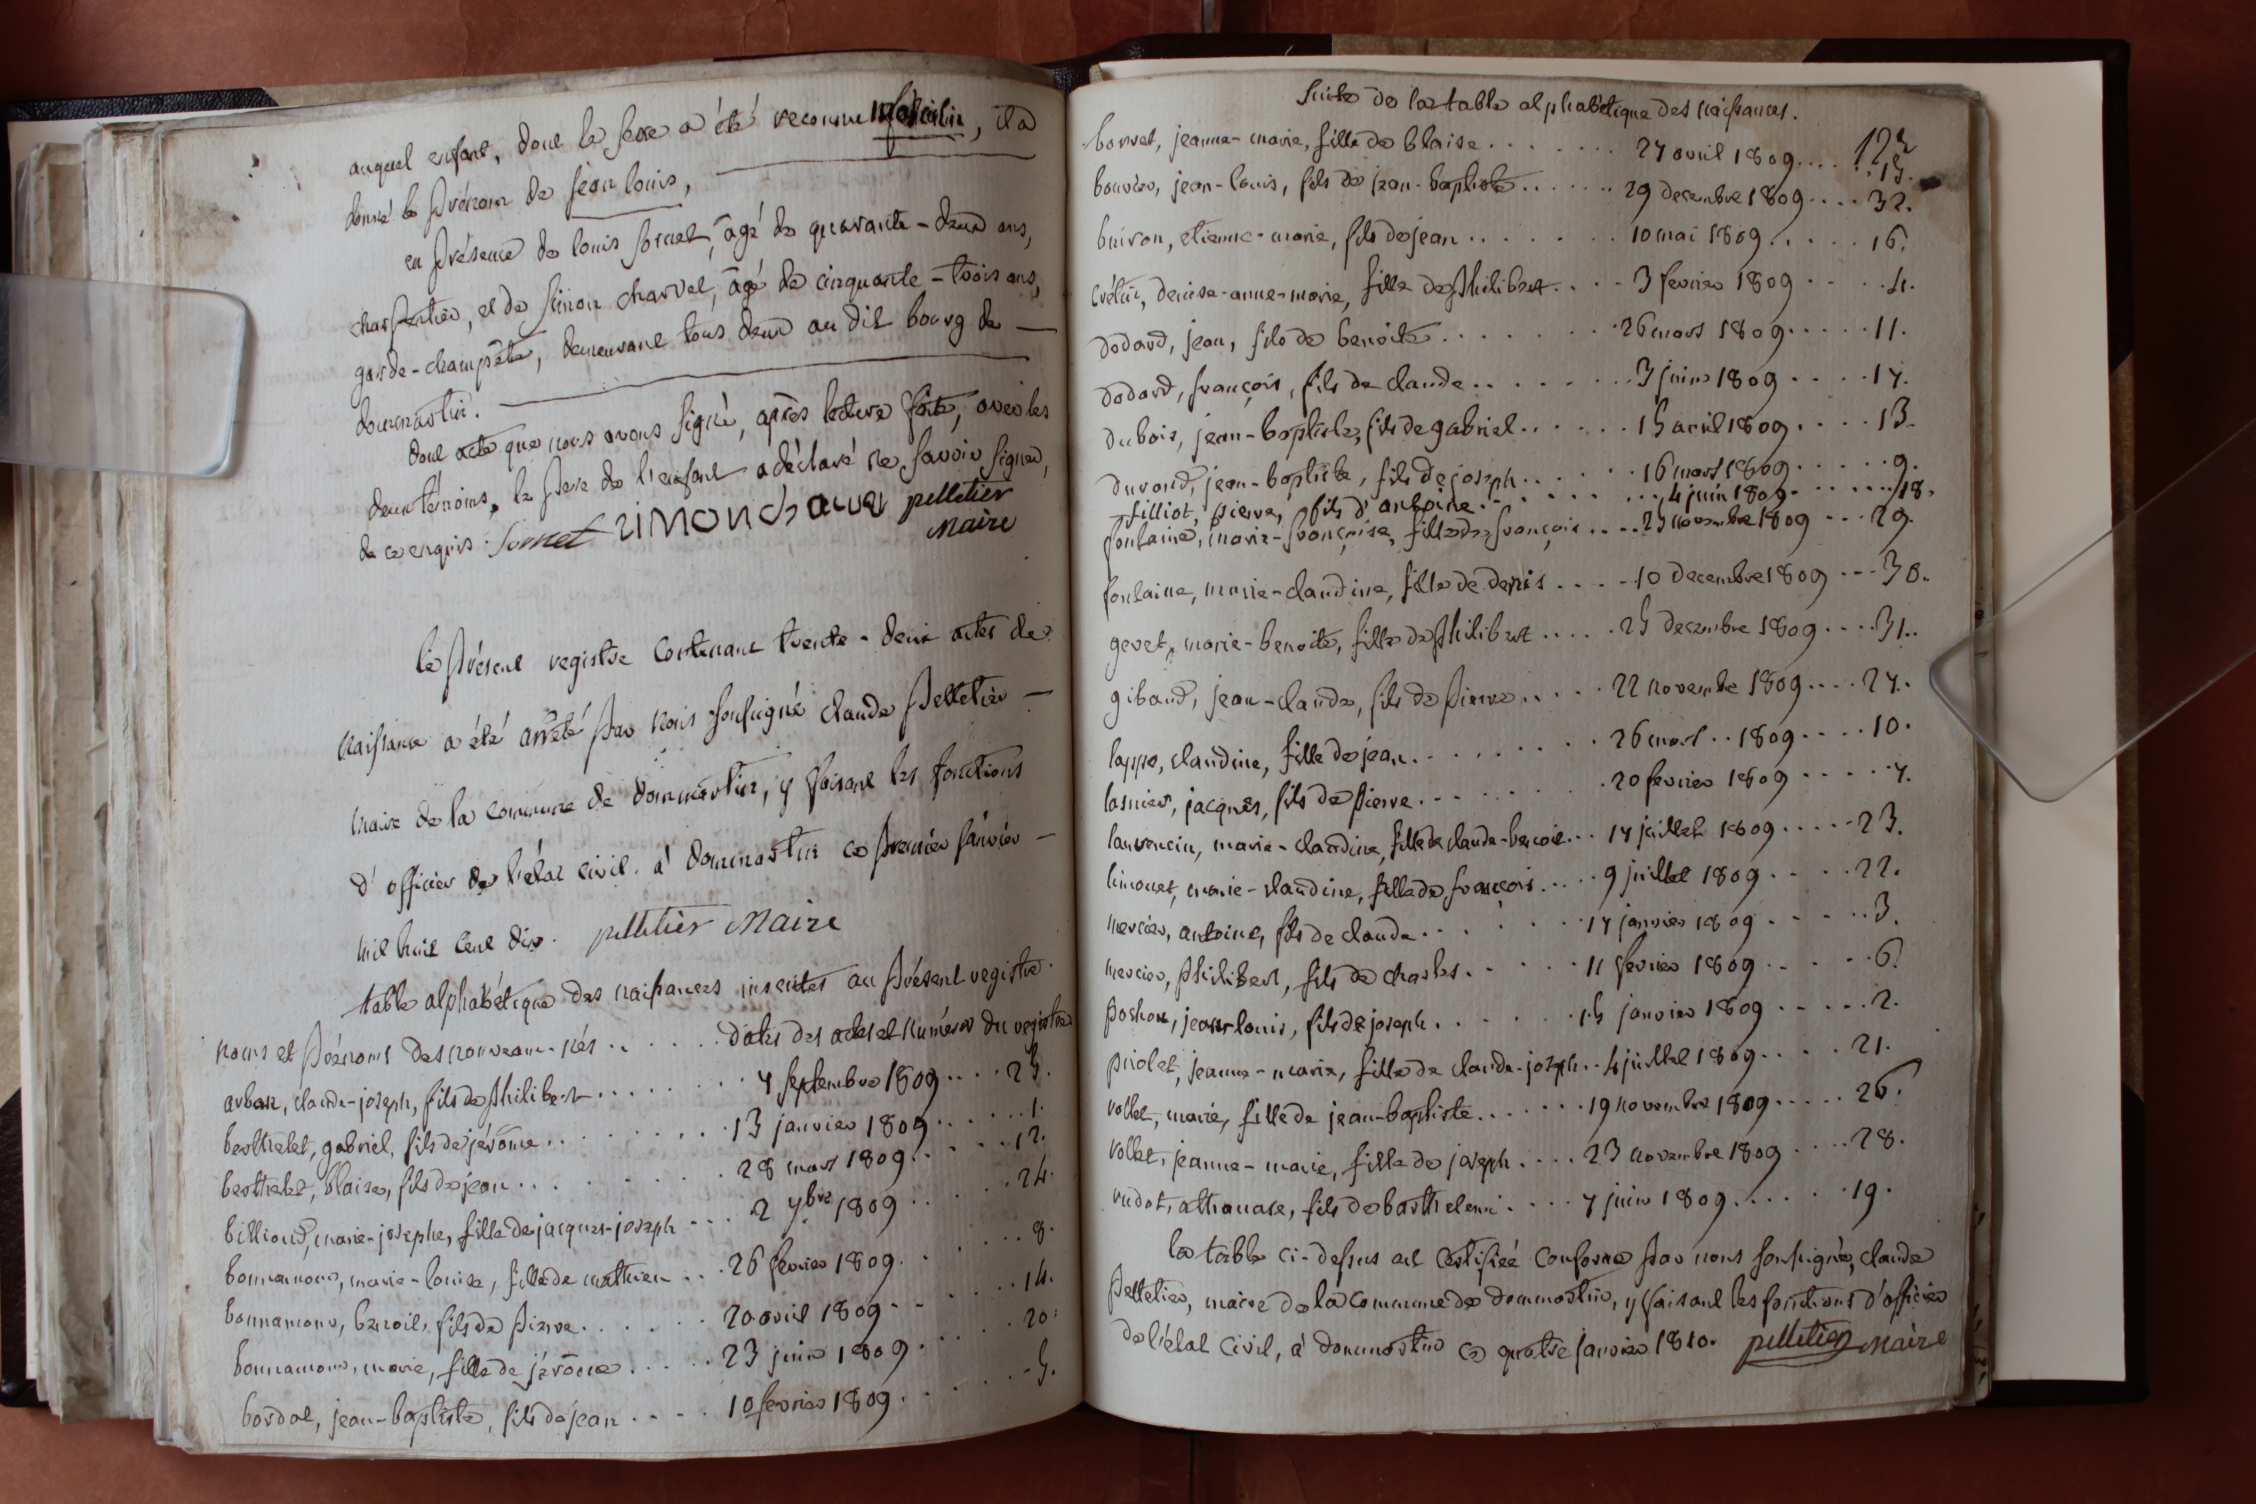 auquel enfant, dont le sexe a été reconnu masculin, il a
donné le prénom de jean louis,
en présence de louis sornet, âgé de quarante-deux ans,
charpentier, et de simon charvet, âgé de cinquante-trois ans,
garde-champêtre, demeurant tous deux au dit bourg de
dommartin.
dont acte que nous avons signé, après lecture faite, avec les
deux témoins, le père de l'enfant a déclaré ne savoir signer,
de ce enquis. Sornet simon charvet pelletier
Maire
le présent registre contenant trente-deux actes de
naissance a été arrêté par nous soussigné claude pelletier
maire de la commune de dommartin, y faisant les fonctions
d'officier de l'état civil. à dommartin ce premier janvier
mil huit cent dix. pelletier Maire
table alphabétique des naissances inscrites au présent registre.
noms et prénoms des nouveau-nés ...... dates des actes et numéros du registre
arban, claude-joseph, fils de philibert ........ 7 septembre 1809 .... 25.
berthelet, gabriel, fils de jérôme ........ 13 janvier 1809 ...... 1.
berthelet, blaise, fils de jean ......... 28 mars 1809 ...... 12.
billioud, marie-josephe, fille de jacques-joseph .... 2 7bre 1809 ..... 24.
bonnamour, marie-louise, fille de mathieu ... 26 fevrier 1809 ..... 8.
bonnamour, benoit, fils de pierre ...... 20 avril 1809 ..... 14.
bonnamour, marie, fille de jérôme ..... 23 juin 1809 ..... 20.
bordat, jean-baptiste, fils de jean .... 10 fevrier 1809 ...... 5.
suite de la table alphabétique des naissances.
125
borvet, jeanne-marie, fille de blaise ....... 27 avril 1809 .... 15.
bouvier, jean-louis, fils de jean-baptiste ...... 29 decembre 1809 .... 32.
buiron, etienne-marie, fils de jean ....... 10 mai 1809 ..... 16.
crétin, denise-anne-marie, fille de philibert .... 3 fevrier 1809 .... 4.
dodard, jean, fils de benoite ....... 26 mars 1809 ..... 11.
dodard, françois, fils de claude ....... 3 juin 1809 .... 17.
dubois, jean-baptiste, fils de gabriel ...... 15 avril 1809 .... 13.
durand, jean-baptiste, fils de joseph ..... 16 mars 1809 ..... 9.
filliot, pierre, fils d'antoine ........ 4 juin 1809 ...... 18.
fontaine, marie-françoise, fille de françois .... 25 novembre 1809 ... 29.
fontaine, marie-claudine, fille de denis .... 10 decembre 1809 ... 30.
gevet, marie-benoite, fille de philibert ..... 25 decembre 1809 .... 31.
gibaud, jean-claude, fils de pierre ..... 22 novembre 1809 .... 27.
lappe, claudine, fille de jean ........ 26 mars .. 1809 .... 10.
lasnier, jacques, fils de pierre ........ 20 fevrier 1809 ..... 7.
laurencin, marie-claudine, fille de claude-benoit ... 17 juillet 1809 ..... 23.
limonet, marie-claudine, fille de françois .... 9 juillet 1809 .... 22.
mercier, antoine, fils de claude ....... 17 janvier 1809 ..... 3.
mercier, philibert, fils de charles ...... 11 fevrier 1809 ..... 6.
pochon, jean louis, fils de joseph ....... 15 janvier 1809 ..... 2.
piolet, jeanne-marie, fille de claude-joseph .. 4 juillet 1809 .... 21.
vollet, marie, fille de jean-baptiste ...... 19 novembre 1809 ..... 26.
vollet, jeanne-marie, fille de joseph .... 23 novembre 1809 .... 28.
rudot, athanase, fils de barthelemi .... 7 juin 1809 ...... 19.
la table ci-dessus est certifiée conforme par nous soussigné, claude
pelletier, maire de la commune de dommartin, y faisant les fonctions d'officier
de l'état civil, à dommartin ce quatre janvier 1810. pelletier Maire